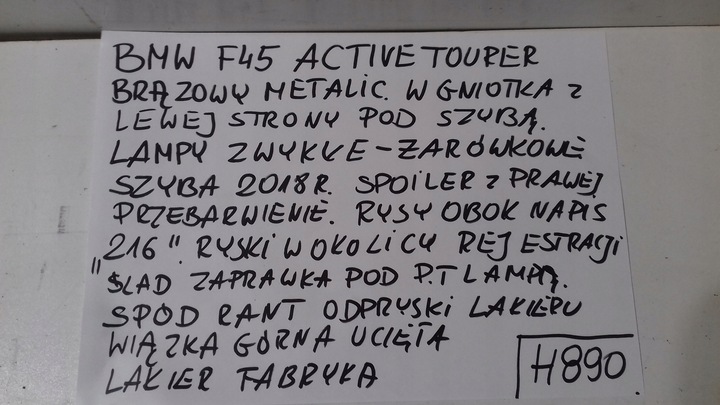 BMW F45 ACTIVE TOURER
BRĄZOWY METALIC. WGNIOTKA Z
LEWEJ STRONY POD SZYBĄ.
LAMPY ZWYKŁE - ŻARÓWKOWE
SZYBA 2018R. SPOILER Z PRAWEJ
PRZEBARWIENIE. RYSY OBOK NAPIS
"216". RYSKI W OKOLICY REJESTRACJI
ŚLAD ZAPRAWKA POD P.T LAMPĄ.
SPÓD RANT ODPRYSKI LAKIERU
WIĄZKA GÓRNA UCIĘTA
LAKIER FABRYKA
H890